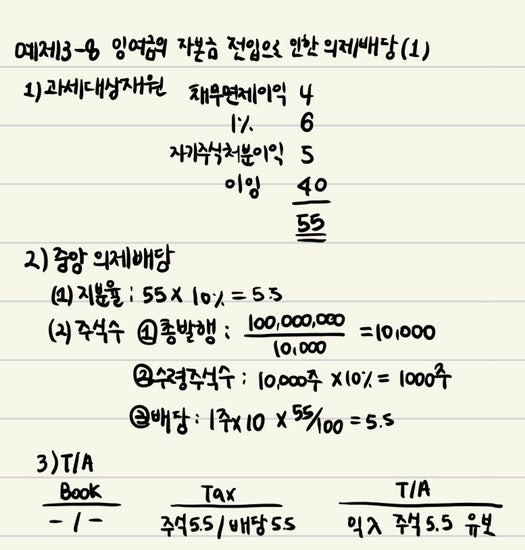 예제13-8 잉여금의 자본금 전입으로 인한 의제배당(1)
1) 과세대상재원 채무면제이익 4
1% 6
자기주식처분이익 5
이잉 40
55
2) 중앙 의제배당
(1) 지분율 : 55 × 10% = 5.5
(2) 주식수 ① 총발행 : 100,000,000 / 10,000 = 10,000
② 수령주식수 : 10,000주 × 10% = 1000주
③ 배당 : 1주 × 10 × 55/100 = 5.5
3) T/A
Book Tax T/A
- / - 주식 5.5 / 배당 5.5 익入 주식 5.5 유보